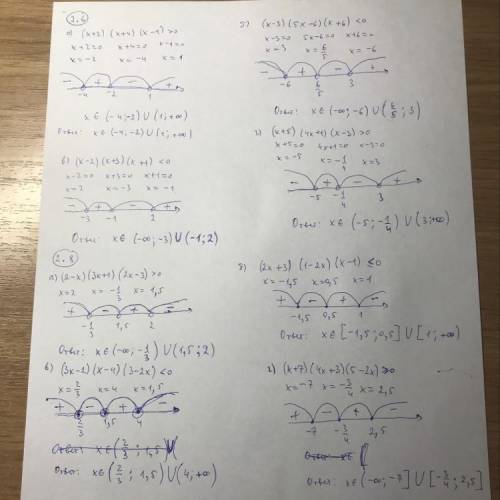 2.6
а) (x+2) (x+4) (x-1) >0
x+2=0 x+4=0 x-1=0
x=-2 x=-4 x=1
- + - +
-4 -2 1
x∈ (-4;-2) U (1;+∞)
Ответ: x∈ (-4;-2) U (1;+∞)
в) (x-2) (x+3) (x+1) <0
x-2=0 x+3=0 x+1=0
x=2 x=-3 x=-1
- + - +
-3 -1 2
Ответ: x∈ (-∞;-3) U (-1;2)
2.8
а) (2-x) (3x+1) (2x-3) >0
x=2 x=-1/3 x=1,5
+ - + -
-1/3 1,5 2
Ответ: x∈ (-∞;-1/3) U (1,5;2)
в) (3x-2) (x-4) (3-2x) <0
x=2/3 x=4 x=1,5
+ - + -
2/3 1,5 4
Ответ: x∈ (2/3; 1,5) U
Ответ: x∈ (2/3; 1,5) U (4;+∞)
(x-3) (5x-6) (x+6) <0
x-3=0 5x-6=0 x+6=0
x=3 x=6/5 x=-6
- + - +
-6 6/5 3
Ответ: x∈ (-∞;-6) U (6/5; 3)
г) (x+5) (4x+1) (x-3) >0
x+5=0 4x+1=0 x-3=0
x=-5 x=-1/4 x=3
- + - +
-5 -1/4 3
Ответ: x∈ (-5;-1/4) U (3;+∞)
(2x+3) (1-2x) (x-1) ≤0
x=-1,5 x=0,5 x=1
+ - + -
-1,5 0,5 1
Ответ: x∈ [-1,5;0,5] U [1;+∞)
г) (x+7) (4x+3) (5-2x) ≥0
x=-7 x=-3/4 x=2,5
+ - + -
-7 -3/4 2,5
Ответ: x∈ [
Ответ: x∈ (-∞;-7] U [-3/4; 2,5]